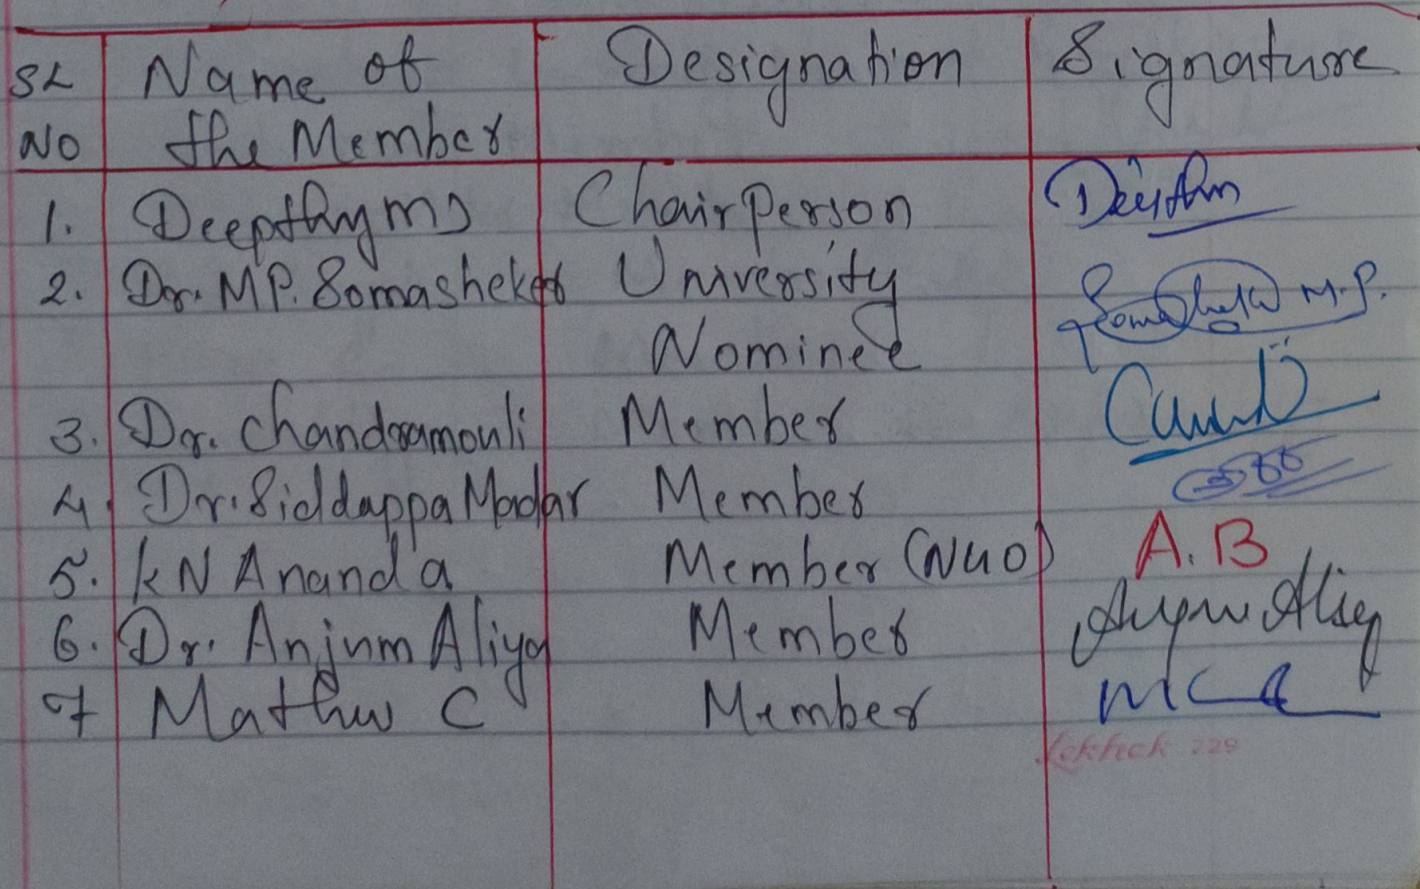 SL NO Name of the Member Designation Signature
1. Deepthy MD Chairperson Deepthy
2. Dr. M P. Somashekar University Nominee Somashekar M.P.
3. Dr. Chandramouli Member
4 Dr. Siddappa Madar Member
5. K N Ananda Member (NUO) A.B
6. Dr. Anjum Aliya Member Anjum Aliya
7 Mathw C Member
Lekhak 229